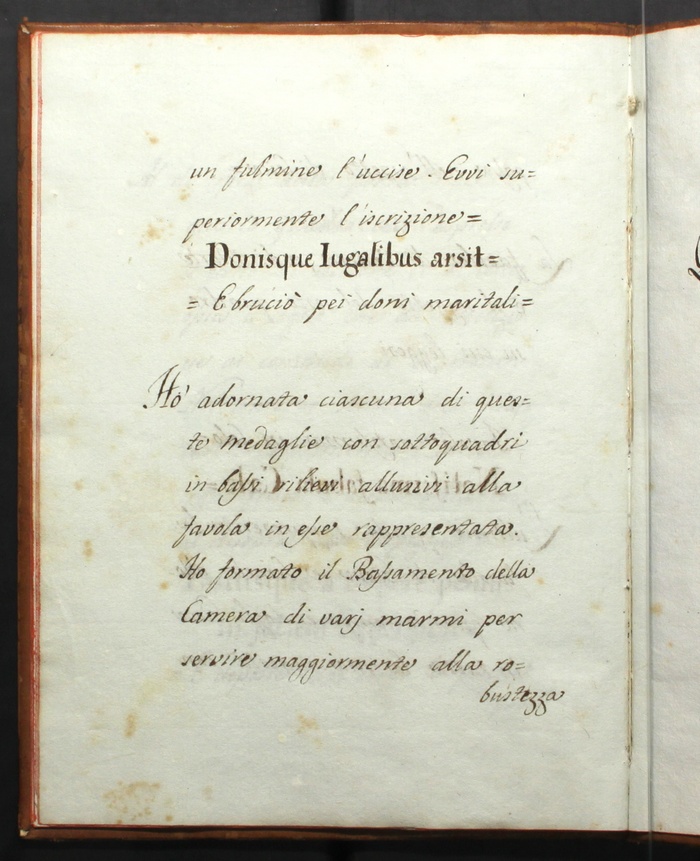 un fulmine l'uccise. Evvi su=
periormente l'iscrizione=
Donisque Iugalibus arsit=
= E bruciò pei doni maritali=
Hò adornata ciascuna di ques=
te medaglie con sottoquadri
in baſsi rilievi allusivi alla
favola in eſse rappresentata.
Ho formato il Baſsamento della
Camera di varj marmi per
servire maggiormente alla ro=
bustezza